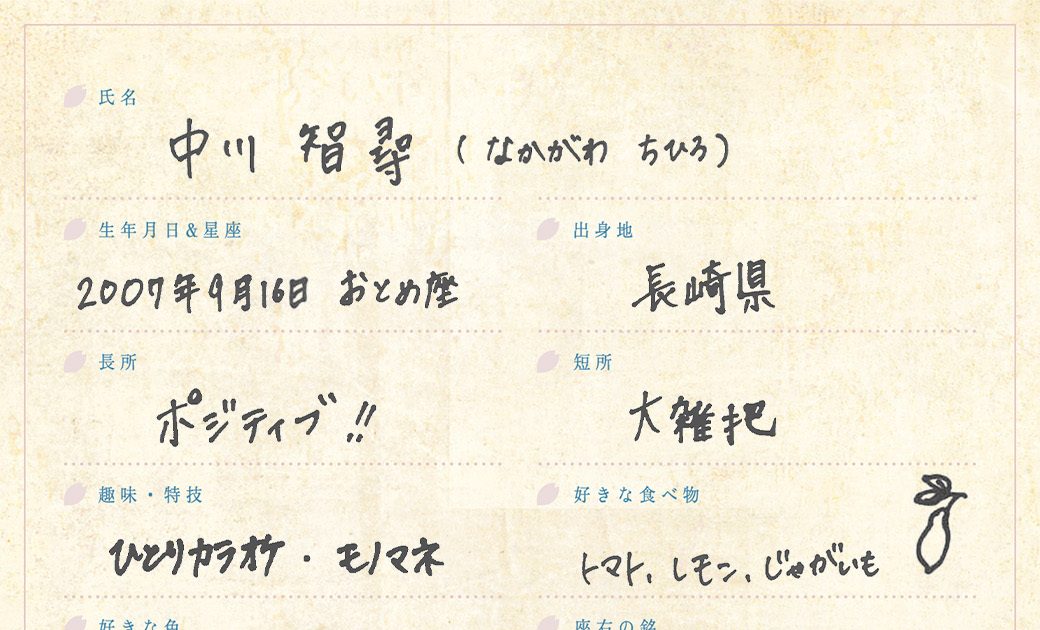 氏名
中川 智尋 (なかがわ ちひろ)
生年月日&星座
2007年9月16日 おとめ座
出身地
長崎県
長所
ポジティブ!!
短所
大雑把
趣味・特技
ひとりカラオケ・モノマネ
好きな食べ物
トマト、レモン、じゃがいも
好きな色
座右の銘